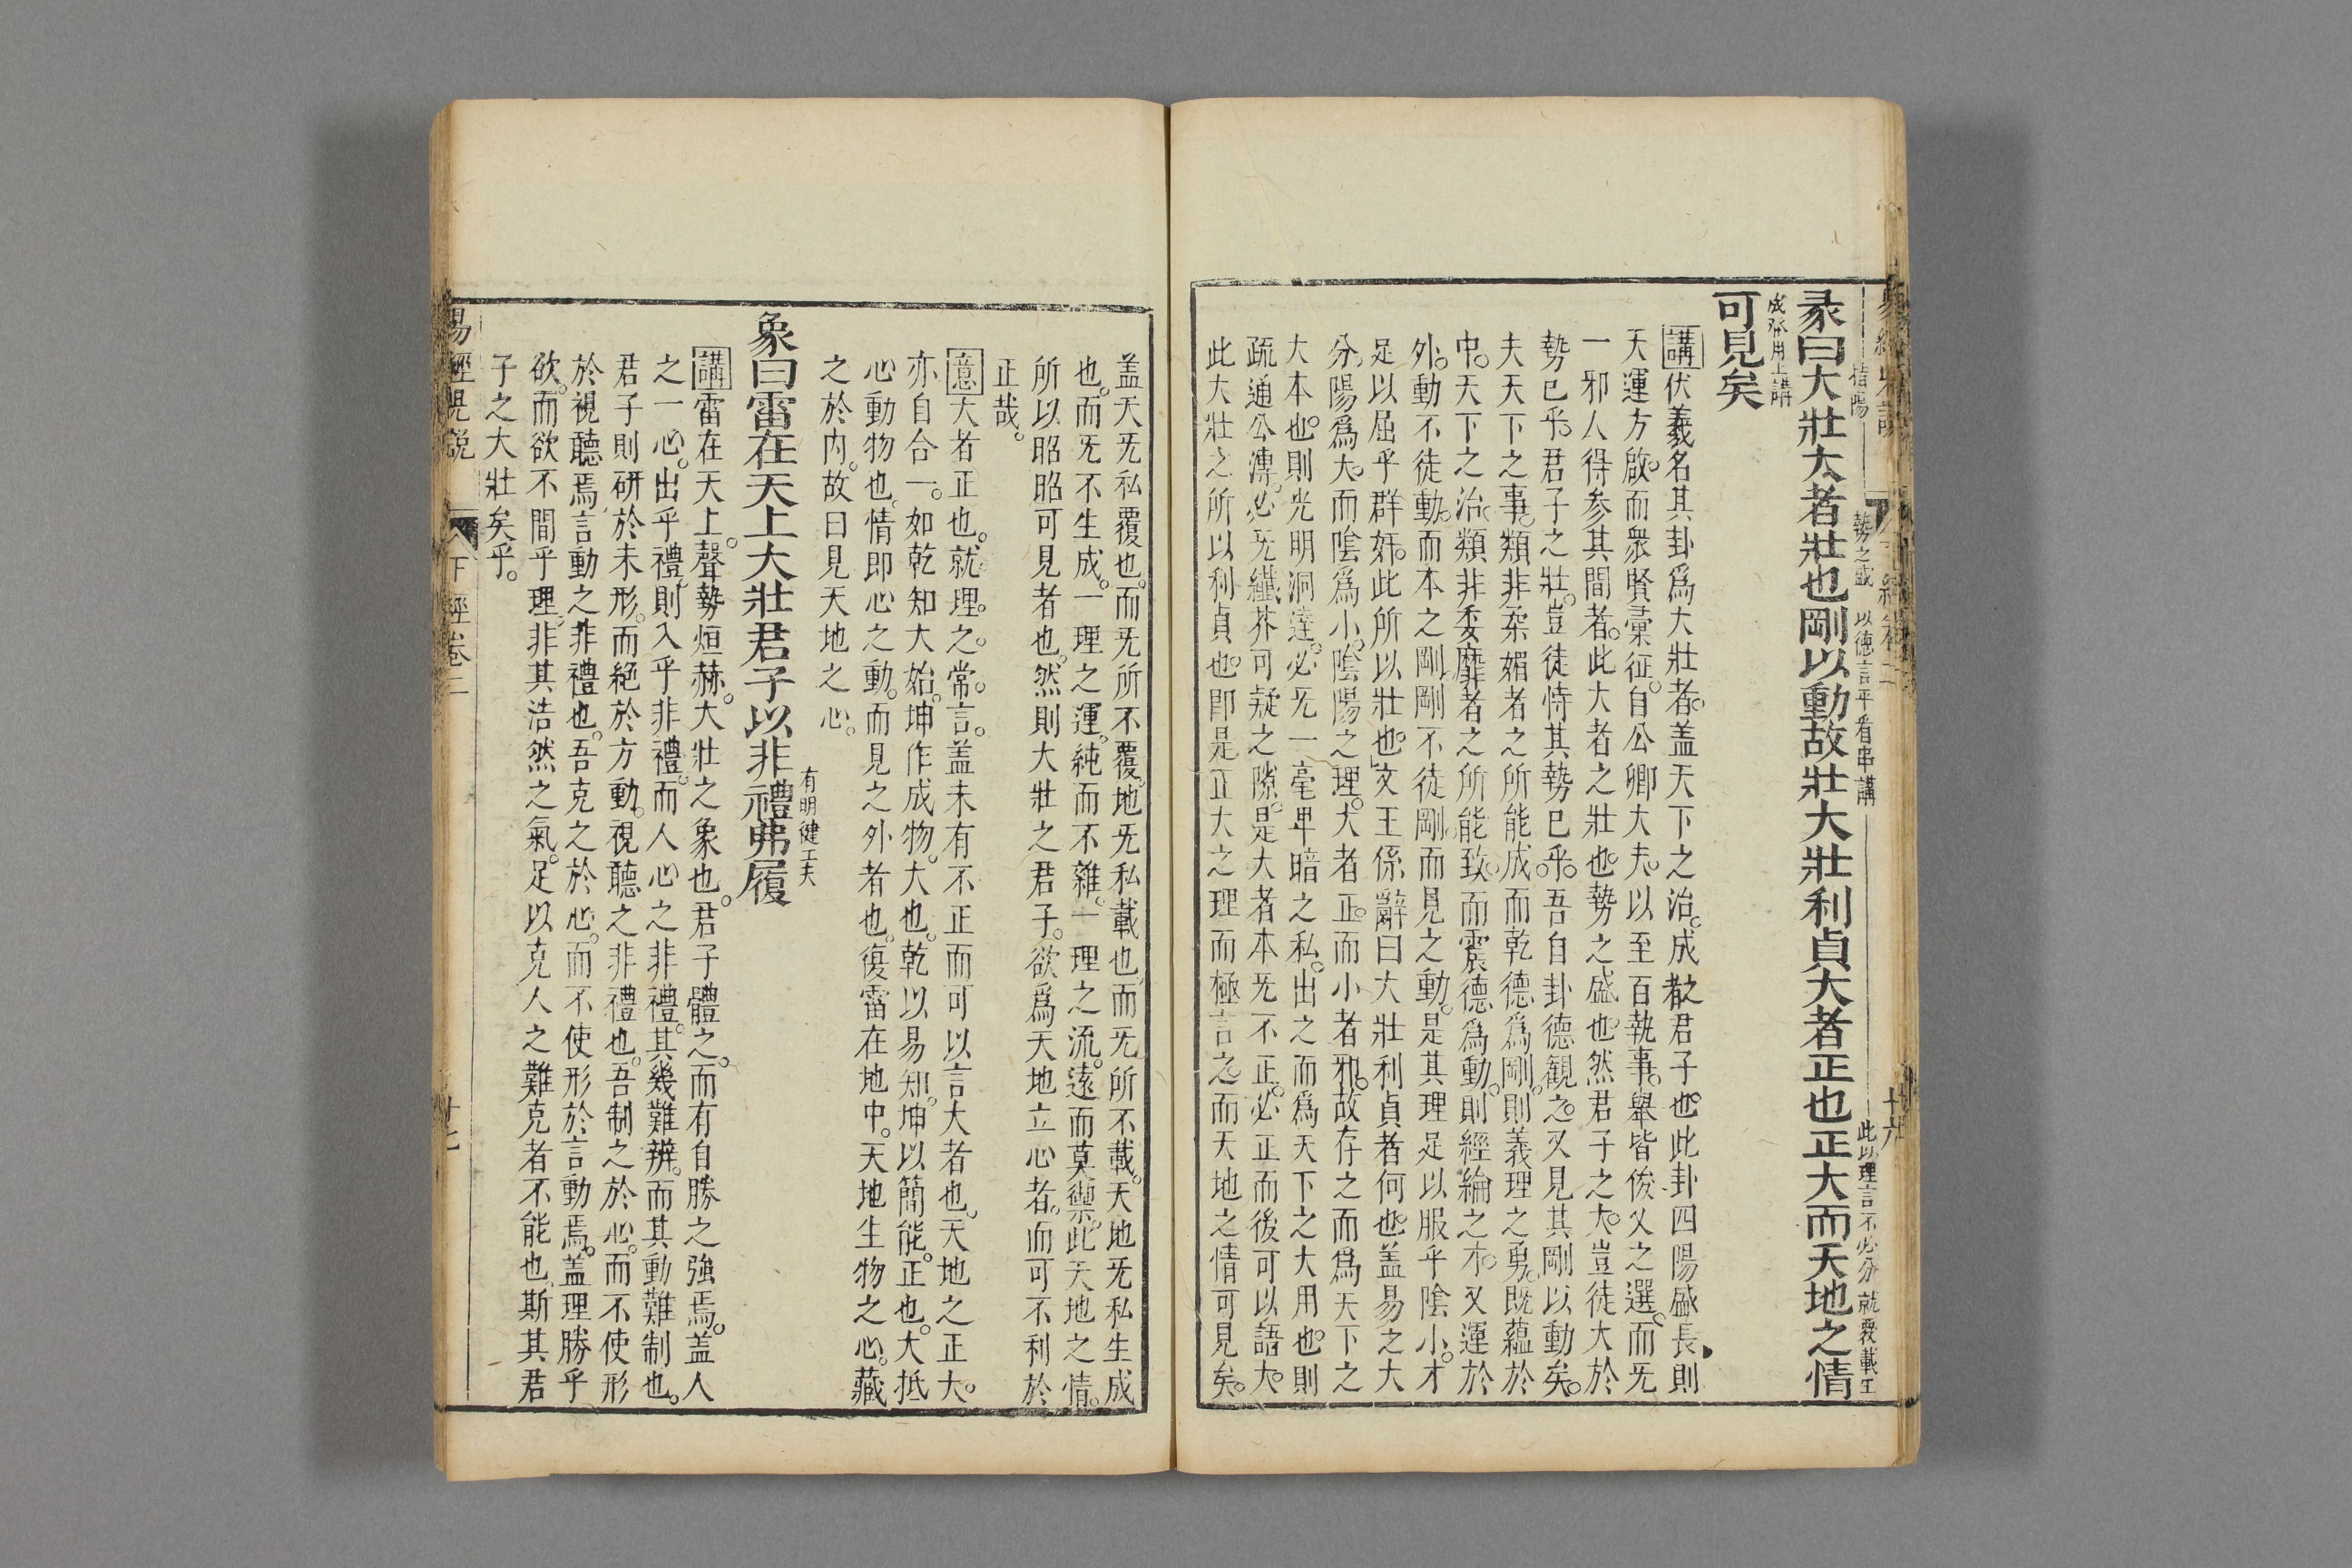 指陽
勢之盛
以德言平看串講
此以理言不必分
就覆載生
彖曰大壯大者壯也剛以動故壯大壯利貞大者正也正大而天地之情
成發用上講
可見矣
講伏羲名其卦爲大壯者。盖天下之治。成之者君子也。此卦四陽盛長則
天運方啟。而衆賢彙征。自公卿大夫。以至百執事。舉皆俊乂之選。而旡
一邪人得參其間者。此大者之壯也。勢之盛也。然君子之大。豈徒大於
勢已乎。君子之壯。豈徒恃其勢已乎。吾自卦德觀之。又見其剛以動矣。
夫天下之事。類非柔媚者之所能成。而乾德爲剛。則義理之勇。旣蘊於
中。天下之治。類非委靡者之所能致。而震德爲動。則經綸之才。又運於
外。動不徒動。而本之剛。剛不徒剛。而見之動。是其理足以服乎陰小。才
足以屈乎群奸。此所以壯也。文王係辭曰大壯利貞者何也。盖易之大
分。陽爲大。而陰爲小。陰陽之理。大者正。而小者邪。故存之而爲天下之
大本也。則光明洞達。必旡一毫卑暗之私。出之而爲天下之大用也。則
疏通公溥。必旡纖芥可疑之隙。是大者本旡不正。必正而後可以語大。
此大壯之所以利貞也。卽是正大之理而極言之。而天地之情可見矣。
十六
盖天旡私覆也。而旡所不覆。地旡私載也。而旡所不載。天地旡私生成
也。而旡不生成。一理之運。純而不雜。一理之流。遠而莫禦。此天地之情。
所以昭昭可見者也。然則大壯之君子。欲爲天地立心者。而可不利於
正哉。
意大者正也。就理之常言。盖未有不正而可以言大者也。天地之正大。
亦自合一。如乾知大始。坤作成物。大也。乾以易知。坤以簡能。正也。大抵
心動物也。情即心之動。而見之外者也。復雷在地中。天地生物之心。藏
之於内。故曰見天地之心。
有明健工夫
象曰雷在天上大壯君子以非禮弗履
講雷在天上。聲勢烜赫。大壯之象也。君子體之。而有自勝之強焉。盖人
之一心。出乎禮。則入乎非禮。而人心之非禮。其幾難辨。而其動難制也。
君子則研於未形。而絕於方動。視聽之非禮也。吾制之於心。而不使形
於視聽焉。言動之非禮也。吾克之於心。而不使形於言動焉。盖理勝乎
欲。而欲不間乎理。非其浩然之氣。足以克人之難克者不能也。斯其君
子之大壯矣乎。
易經兒説
下經卷二
十七